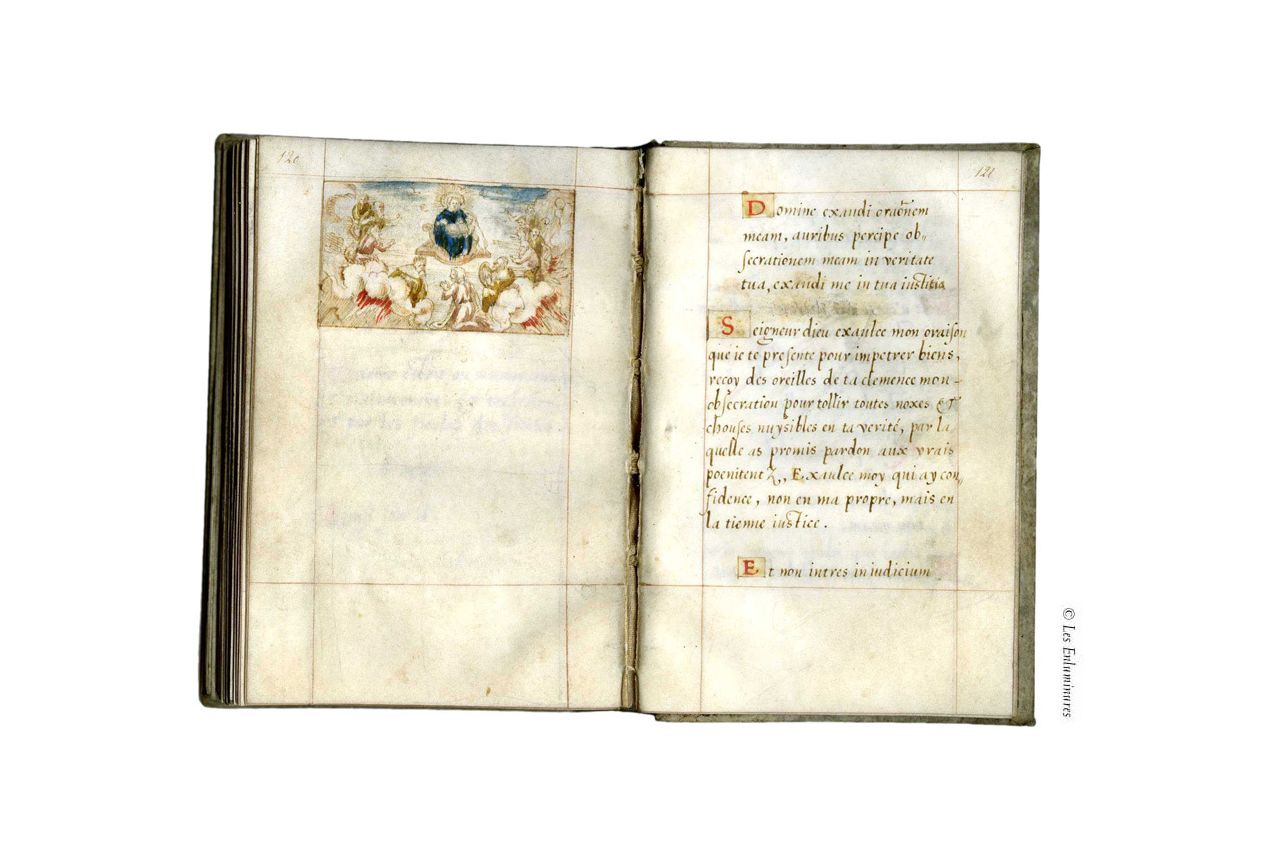 120
121
Domine exaudi orac̃nem
meam, auribus percipe ob„
secrationem meam in veritate
tua, exaudi me in tua iustitia
Seigneur dieu exaulce mon oraison
que ie te presente pour impetrer biens,
recoy des oreilles de ta clemence mon -
obsecration pour tollir toutes noxes &
chouses nuysibles en ta verité, par la
quelle as promis pardon aux vrais
poenitentz,, Exaulce moy qui ay con„
fidence, non en ma propre, mais en
la tienne iustice.
Et non intres in iudicium
© Les Enluminures